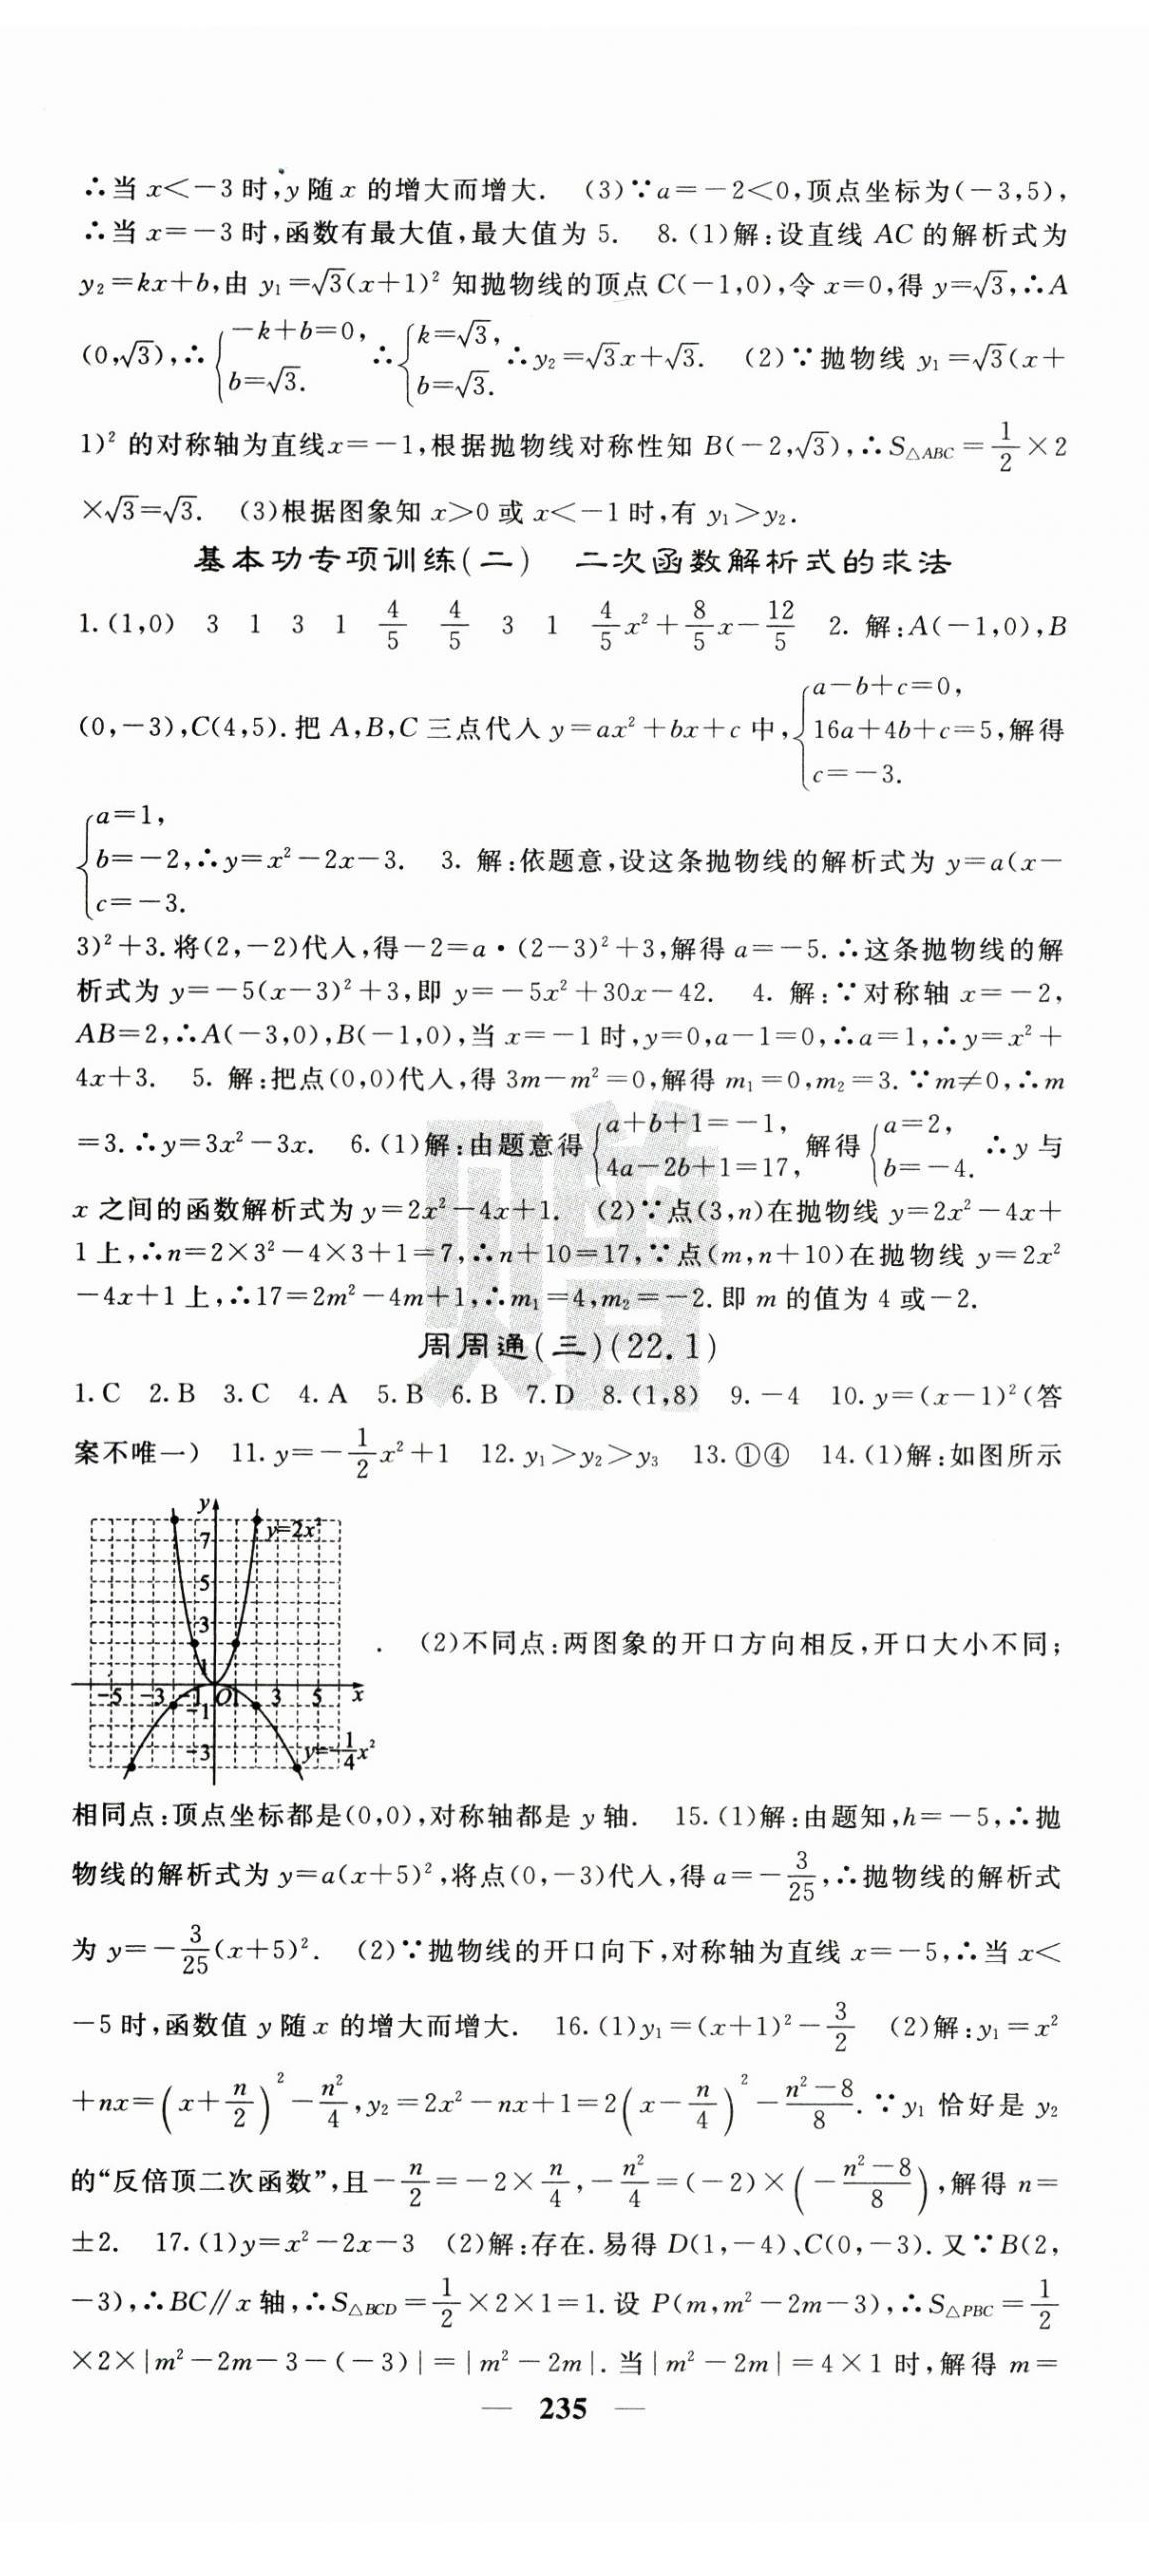 ∴当 x<-3 时,y 随 x 的增大而增大. (3)∵a=-2<0,顶点坐标为(-3,5),
∴当 x=-3 时,函数有最大值,最大值为 5. 8.(1)解:设直线 AC 的解析式为
y₂=kx+b,由 y₁=√3(x+1)² 知抛物线的顶点 C(-1,0),令 x=0,得 y=√3,∴A
(0,√3),∴{-k+b=0, b=√3. ∴{k=√3, b=√3. ∴y₂=√3x+√3. (2)∵抛物线 y₁=√3(x+
1)² 的对称轴为直线x=-1,根据抛物线对称性知 B(-2,√3),∴S△ABC=1/2×2
×√3=√3. (3)根据图象知 x>0 或 x<-1 时,有 y₁>y₂.
基本功专项训练(二) 二次函数解析式的求法
1.(1,0) 3 1 3 1 4/5 4/5 3 1 4/5x²+8/5x-12/5 2. 解:A(-1,0),B
(0,-3),C(4,5).把 A,B,C 三点代入 y=ax²+bx+c 中,{a-b+c=0, 16a+4b+c=5, c=-3. 解得
{a=1, b=-2, c=-3. ∴y=x²-2x-3. 3. 解:依题意,设这条抛物线的解析式为 y=a(x-
3)²+3.将(2,-2)代入,得-2=a·(2-3)²+3,解得 a=-5.∴这条抛物线的解
析式为 y=-5(x-3)²+3,即 y=-5x²+30x-42. 4. 解:∵对称轴 x=-2,
AB=2,∴A(-3,0),B(-1,0),当 x=-1 时,y=0,a-1=0,∴a=1,∴y=x²+
4x+3. 5. 解:把点(0,0)代入,得 3m-m²=0,解得 m₁=0,m₂=3.∵m≠0,∴m
=3.∴y=3x²-3x. 6.(1)解:由题意得{a+b+1=-1, 4a-2b+1=17, 解得{a=2, b=-4. ∴y 与
x 之间的函数解析式为 y=2x²-4x+1. (2)∵点(3,n)在抛物线 y=2x²-4x+
1 上,∴n=2×3²-4×3+1=7,∴n+10=17,∵点(m,n+10)在抛物线 y=2x²
-4x+1 上,∴17=2m²-4m+1,∴m₁=4,m₂=-2.即 m 的值为 4 或-2.
周周通(三)(22.1)
1.C 2.B 3.C 4.A 5.B 6.B 7.D 8.(1,8) 9.-4 10.y=(x-1)²(答
案不唯一) 11.y=-1/2x²+1 12.y₁>y₂>y₃ 13.①④ 14.(1)解:如图所示
y
y=2x²
7
5
3
1
-5 -3 -1 O 1 3 5 x
-1
-3
y=-1/4x²
. (2)不同点:两图象的开口方向相反,开口大小不同;
相同点:顶点坐标都是(0,0),对称轴都是 y 轴. 15.(1)解:由题知,h=-5,∴抛
物线的解析式为 y=a(x+5)²,将点(0,-3)代入,得 a=-3/25,∴抛物线的解析式
为 y=-3/25(x+5)². (2)∵抛物线的开口向下,对称轴为直线 x=-5,∴当 x<
-5 时,函数值 y 随 x 的增大而增大. 16.(1)y₁=(x+1)²-3/2 (2)解:y₁=x²
+nx=(x+n/2)²-n²/4,y₂=2x²-nx+1=2(x-n/4)²-(n²-8)/8.∵y₁ 恰好是 y₂
的“反倍顶二次函数”,且-n/2=-2×n/4,-n²/4=(-2)×(-(n²-8)/8),解得 n=
±2. 17.(1)y=x²-2x-3 (2)解:存在.易得 D(1,-4)、C(0,-3).又∵B(2,
-3),∴BC∥x 轴,∴S△BCD=1/2×2×1=1.设 P(m,m²-2m-3),∴S△PBC=1/2
×2×|m²-2m-3-(-3)|=|m²-2m|.当|m²-2m|=4×1 时,解得 m=
— 235 —